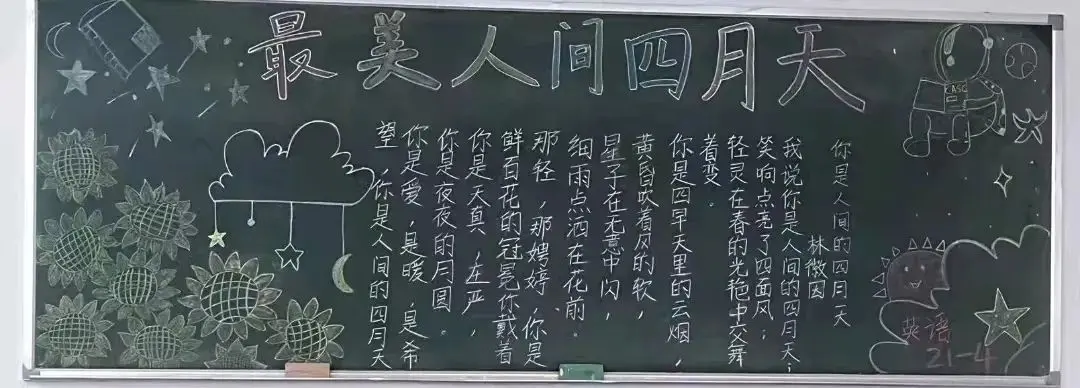 最美人间四月天
你是人间的四月天
林徽因
我说你是人间的四月天；
笑响点亮了四面风；
轻灵在春的光艳中交舞
着变。
你是四早天里的云烟，
黄昏吹着风的软，
星子在无意中闪，
细雨点洒在花前。
那轻，那娉婷，你是
鲜百花的冠冕你戴着
你是天真，庄严，
你是夜夜的月圆。
你是爱，是暖，是希
望，你是人间的四月天
英语
21-4